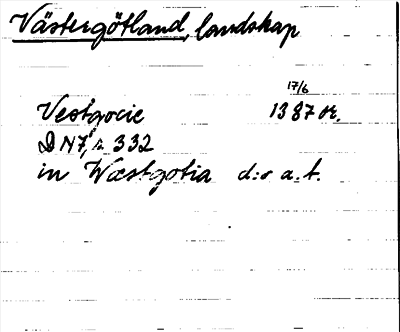 Västergötland, landskap
17/6
Vestgocie 1387 or.
DN7, s. 332
in Wæstgotia d:o a.t.